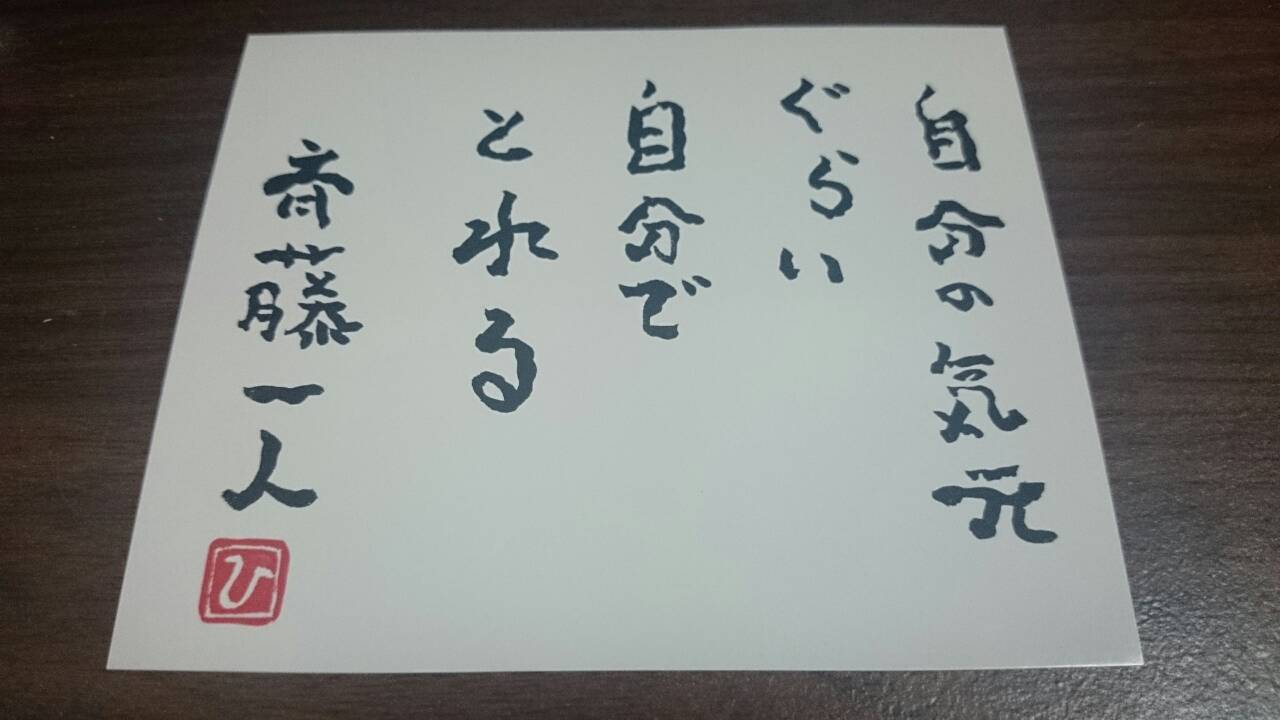 自分の気元
ぐらい
自分で
とれる
斉藤一人
ひ